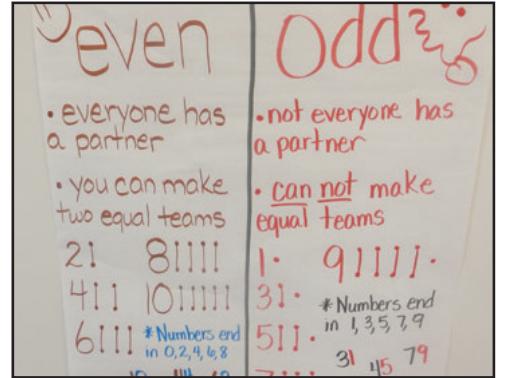 even
• everyone has
a partner
• you can make
two equal teams
2 8
4 10
6 * Numbers end
in 0,2,4,6,8
Odd
• not everyone has
a partner
• can not make
equal teams
1 9
3 * Numbers end
in 1,3,5,7,9
5
31 45 79